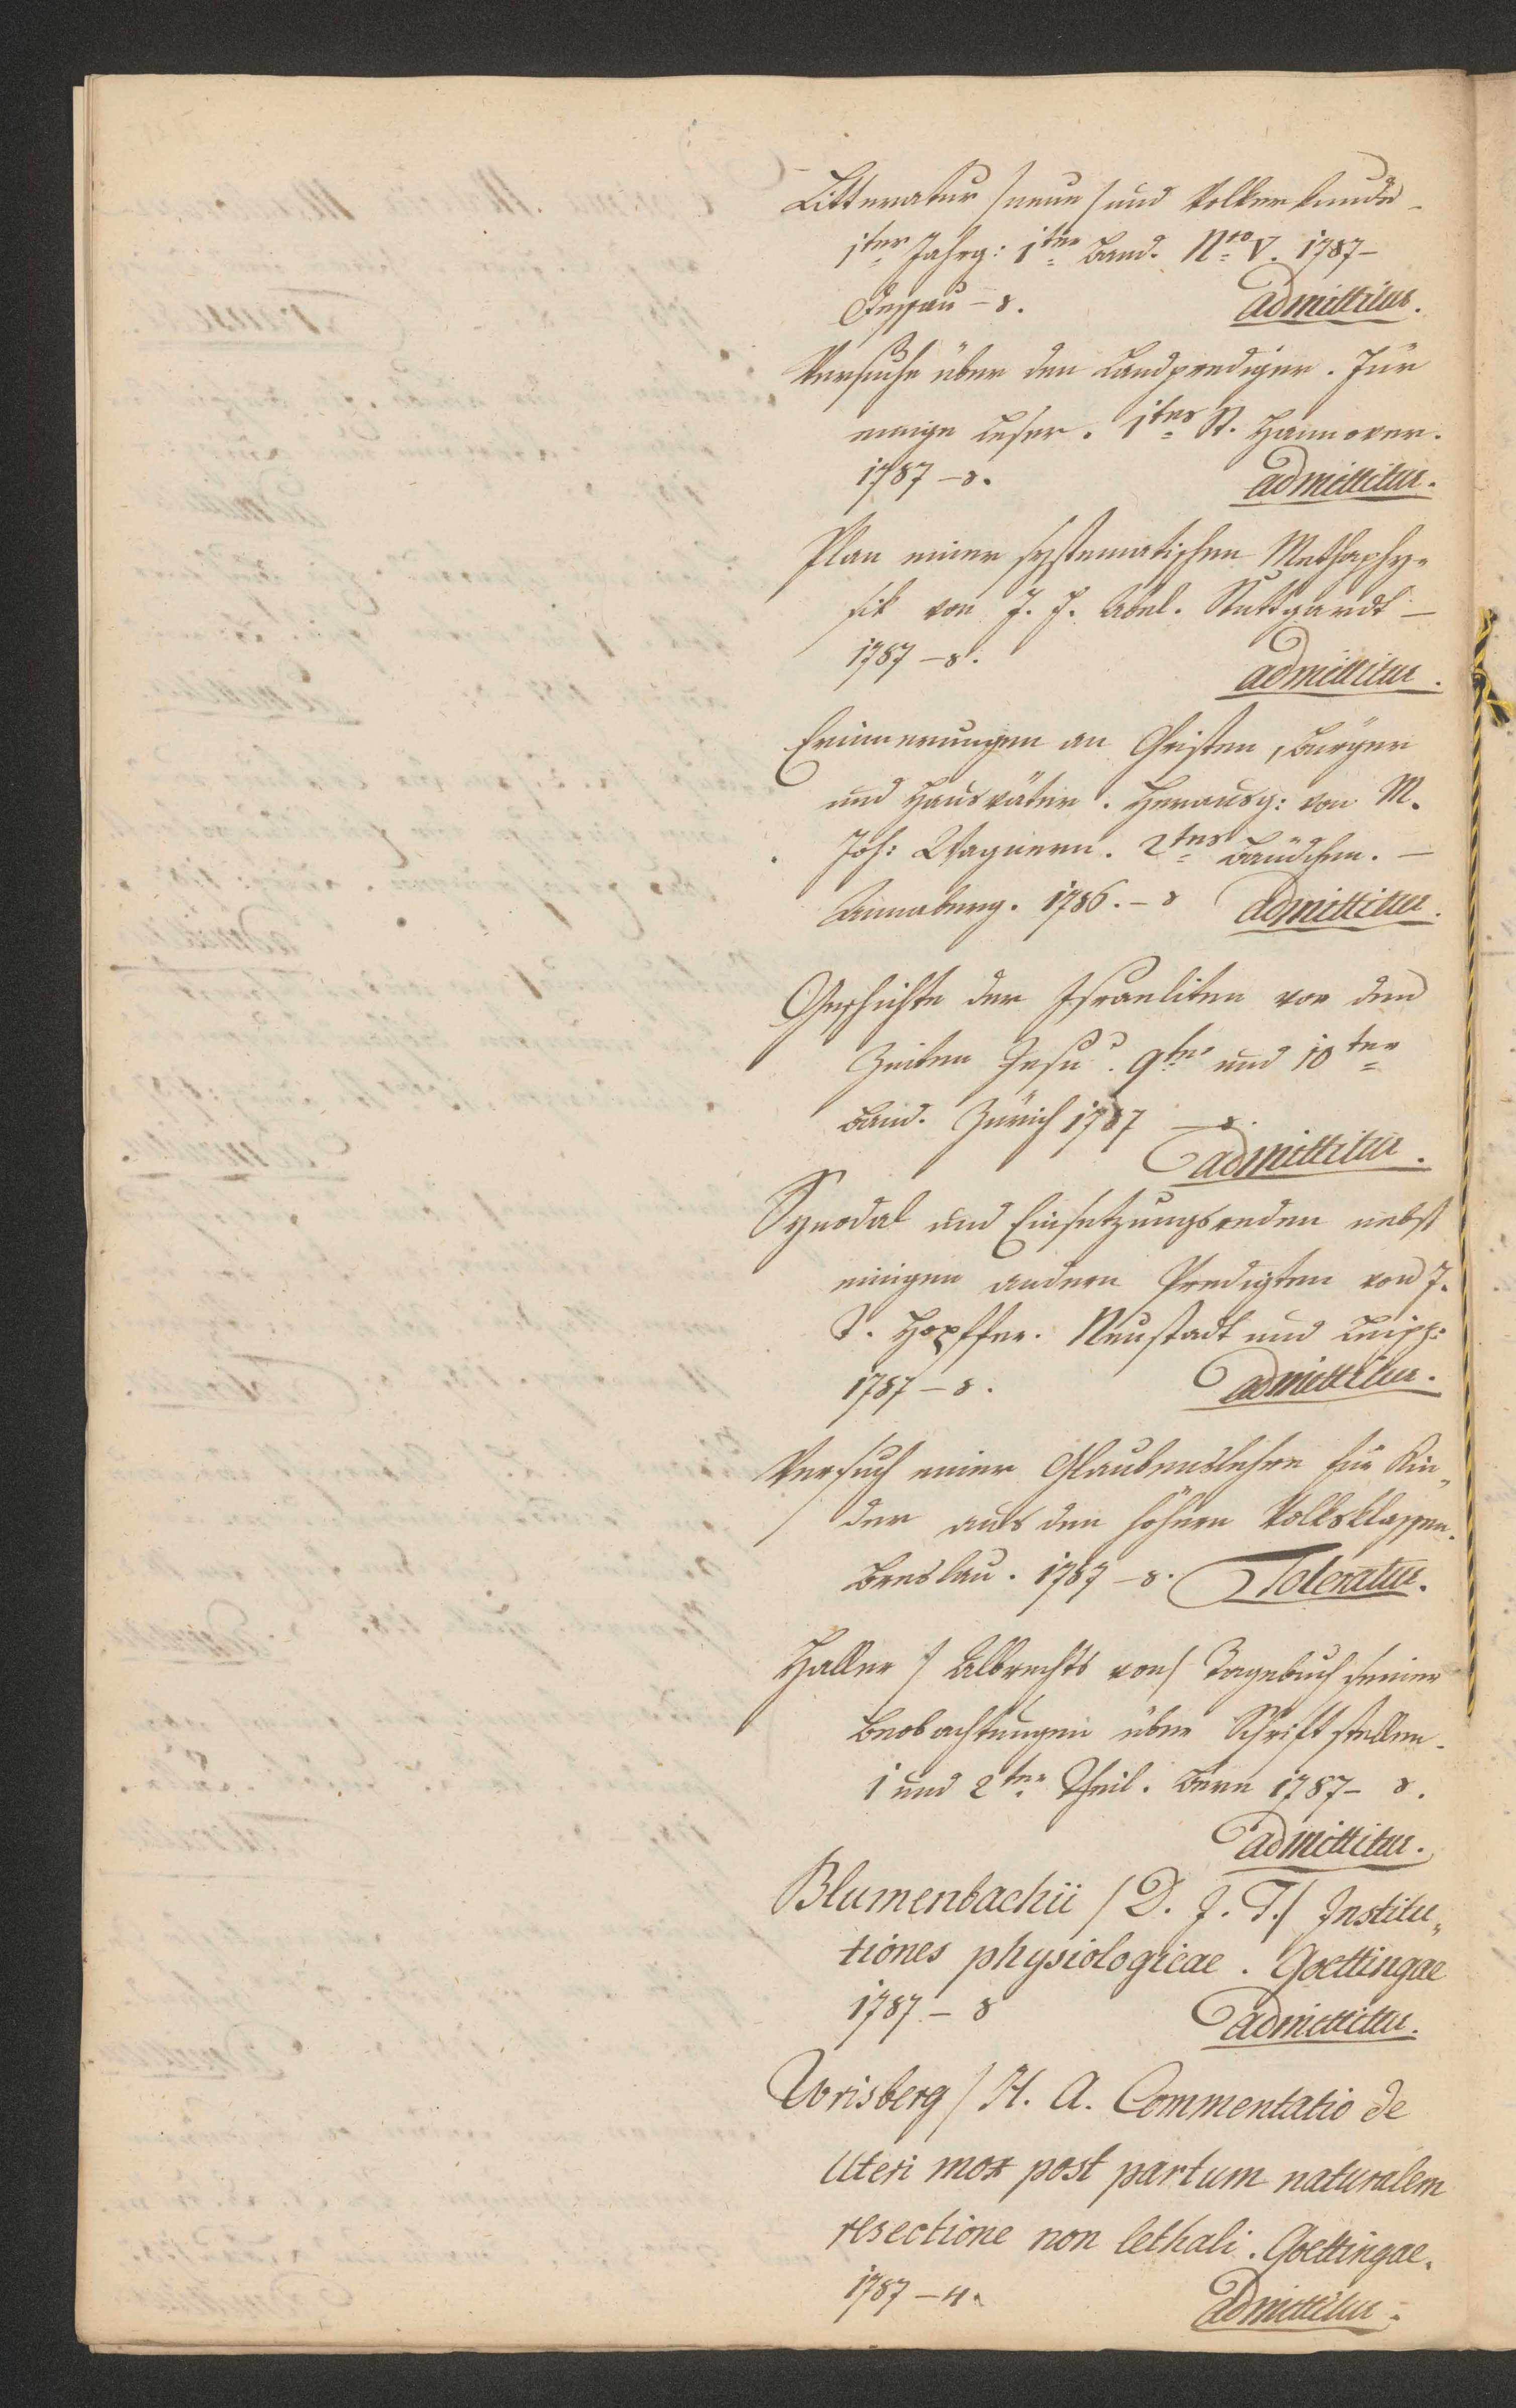 Litteratur /neue/ und Volkerkunde –
1ter Jahrg: 1ter Band. Nro V. 1787 –
Dessau – 8. admittitur.
Versuche über den Landprediger. Für
einige Leser. 1tes St. Hannover.
1787 – 8. admittitur.
Plan einer systematischen Methaphy-
sik von J. F. Abel. Stuttgardt –
1787 – 8. admittitur.
Erinnerungen an Christen, Bürger
und Hausväter. Herausg: von M.
Joh: Wagnern. 2tes Bändchen. –
Annaberg. 1786. – 8 admittitur.
Geschichte der Israeliten vor den
Zeiten Jesu. 9ter und 10ter
Band. Zürich 1787 – 8.
admittitur.
Synodal und Einsetzungsreden nebst
einigen andern Predigten von J.
S. Hopffer. Neustadt und Leipz:
1787 – 8. admittitur.
Versuch einer Glaubenslehre für Kin-
der aus den höhern Volksklassen.
Breslau. 1787 – 8. Toleratur.
Haller / Albrechts von / Tagebuch seiner
Beobachtungen über Schriftsteller.
1 und 2ter Theil. Bern 1787 – 8.
admittitur.
Blumenbachii / D. J. F. / Institu-
tiones physiologicae. Goettingae
1787 – 8 admittitur.
Wrisberg / H. A. Commentatio de
Uteri mox post partum naturalem
resectione non lethali. Goettingae.
1787 – 4. admittitur.